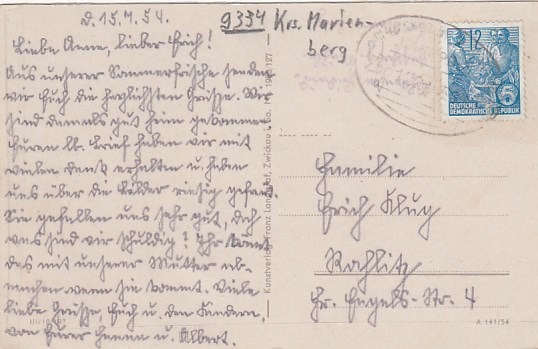 d. 15.7.54.
9334 Krs. Marien-
berg
Liebe Anne, lieber Erich!
Aus unserer Sommerfrische senden
wir Euch die herzlichsten Grüsse. Wir
sind damals gut heim gekommen.
Euren lb. Brief haben wir mit
vielen Dank erhalten u. haben
uns über die Bilder riesig gefreut.
Sie gefallen uns sehr gut, doch
was sind wir schuldig? Ihr könnt
das mit unserer Mutter ab-
machen wenn sie kommt. Viele
liebe Grüsse, Euch u. den Kindern,
von Eurer Hanna u. Albert.
Kunstverlag Franz Landgraf, Zwickau i. Sa.
12
DEUTSCHE
DEMOKRATISCHE REPUBLIK
Familie
Erich Klug
Rochlitz
Fr.-Engels-Str. 4
A 141/54